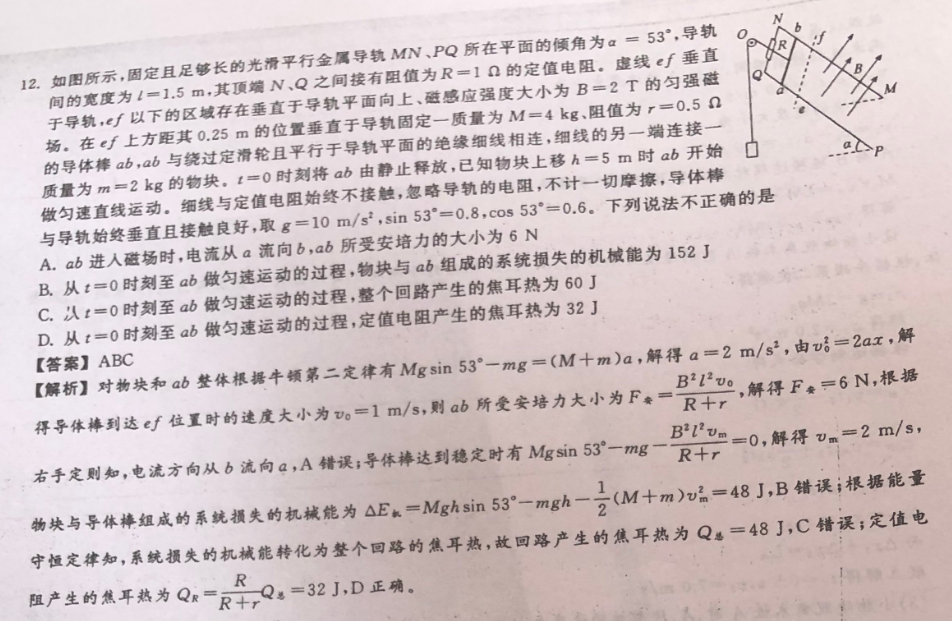 12. 如图所示,固定且足够长的光滑平行金属导轨 MN、PQ 所在平面的倾角为α = 53°,导轨
间的宽度为 l=1.5 m,其顶端 N、Q 之间接有阻值为 R=1 Ω 的定值电阻。虚线 ef 垂直
于导轨,ef 以下的区域存在垂直于导轨平面向上、磁感应强度大小为 B=2 T 的匀强磁
场。在 ef 上方距其 0.25 m 的位置垂直于导轨固定一质量为 M=4 kg、阻值为 r=0.5 Ω
的导体棒 ab,ab 与绕过定滑轮且平行于导轨平面的绝缘细线相连,细线的另一端连接一
质量为 m=2 kg 的物块。t=0 时刻将 ab 由静止释放,已知物块上移 h=5 m 时 ab 开始
做匀速直线运动。细线与定值电阻始终不接触,忽略导轨的电阻,不计一切摩擦,导体棒
与导轨始终垂直且接触良好,取 g=10 m/s²,sin 53°=0.8,cos 53°=0.6。下列说法不正确的是
A. ab 进入磁场时,电流从 a 流向 b,ab 所受安培力的大小为 6 N
B. 从 t=0 时刻至 ab 做匀速运动的过程,物块与 ab 组成的系统损失的机械能为 152 J
C. 从 t=0 时刻至 ab 做匀速运动的过程,整个回路产生的焦耳热为 60 J
D. 从 t=0 时刻至 ab 做匀速运动的过程,定值电阻产生的焦耳热为 32 J
【答案】ABC
【解析】对物块和 ab 整体根据牛顿第二定律有 Mg sin 53°−mg=(M+m)a,解得 a=2 m/s²,由 v₀²=2ax,解
得导体棒到达 ef 位置时的速度大小为 v₀=1 m/s,则 ab 所受安培力大小为 F安=B²l²v₀/(R+r),解得 F安=6 N,根据
右手定则知,电流方向从 b 流向 a,A 错误;导体棒达到稳定时有 Mgsin 53°−mg−B²l²vm/(R+r)=0,解得 vm=2 m/s,
物块与导体棒组成的系统损失的机械能为 ΔE机=Mgh sin 53°−mgh−1/2(M+m)vm²=48 J,B 错误;根据能量
守恒定律知,系统损失的机械能转化为整个回路的焦耳热,故回路产生的焦耳热为 Q总=48 J,C 错误;定值电
阻产生的焦耳热为 QR=R/(R+r)Q总=32 J,D 正确。
N
b
f
O
R
B
M
Q
a
e
α
P